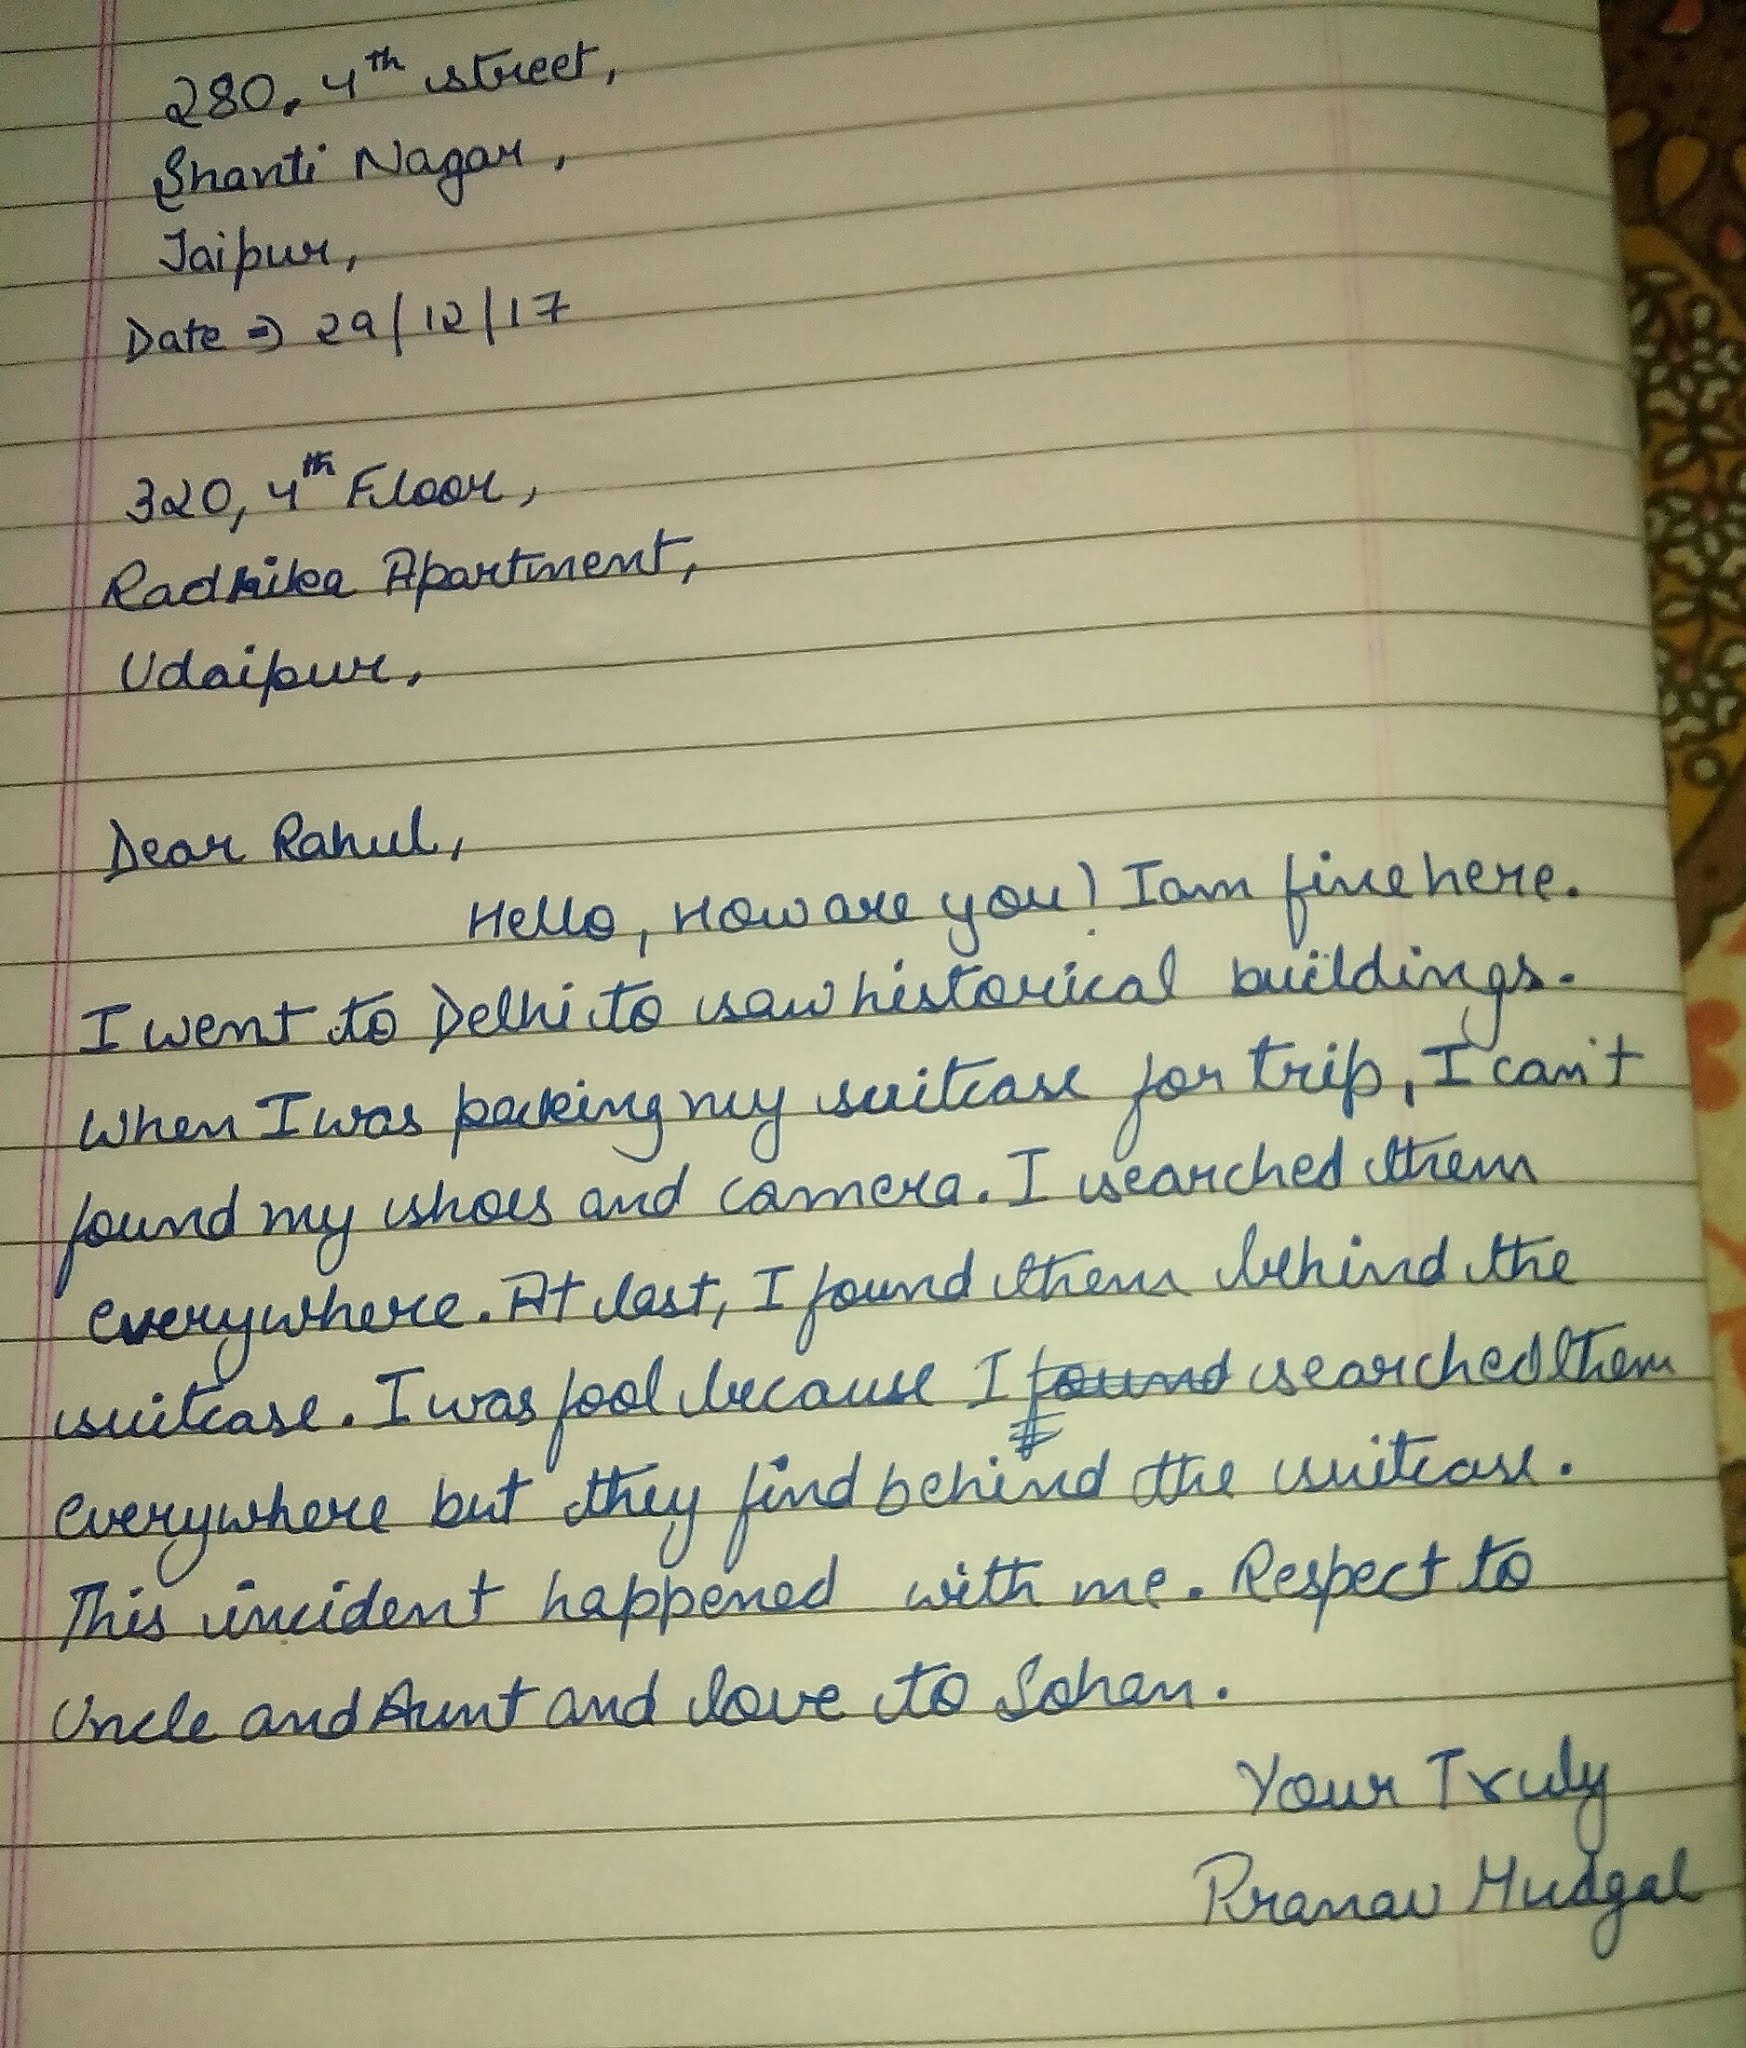 280, 4th street,
Shanti Nagar,
Jaipur,
Date ⇒ 29/12/17
320, 4th Floor,
Radhika Apartment,
Udaipur,
Dear Rahul,
Hello, How are you? I am fine here.
I went to Delhi to saw historical buildings.
When I was packing my suitcase for trip, I can't
found my shoes and camera. I searched them
everywhere. At last, I found them behind the
suitcase. I was fool because I found searched them
everywhere but they find behind the suitcase.
This incident happened with me. Respect to
Uncle and Aunt and love to Sohan.
Your Truly
Pranav Mudgal